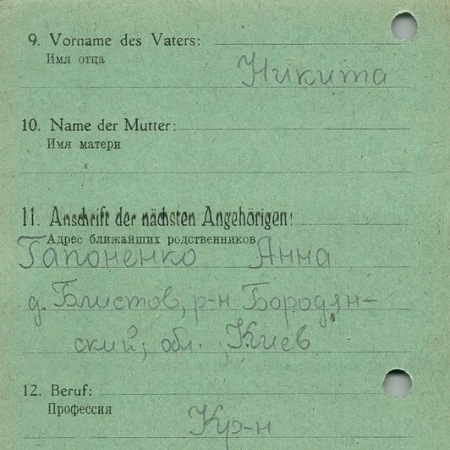 9. Vorname des Vaters:
Имя отца
Никита
10. Name der Mutter:
Имя матери
11. Anschrift der nächsten Angehörigen:
Адрес ближайших родственников
Гапоненко Анна
д. Блистов, р-н Бородян-
ский, обл. Киев
12. Beruf:
Профессия
Кр-н